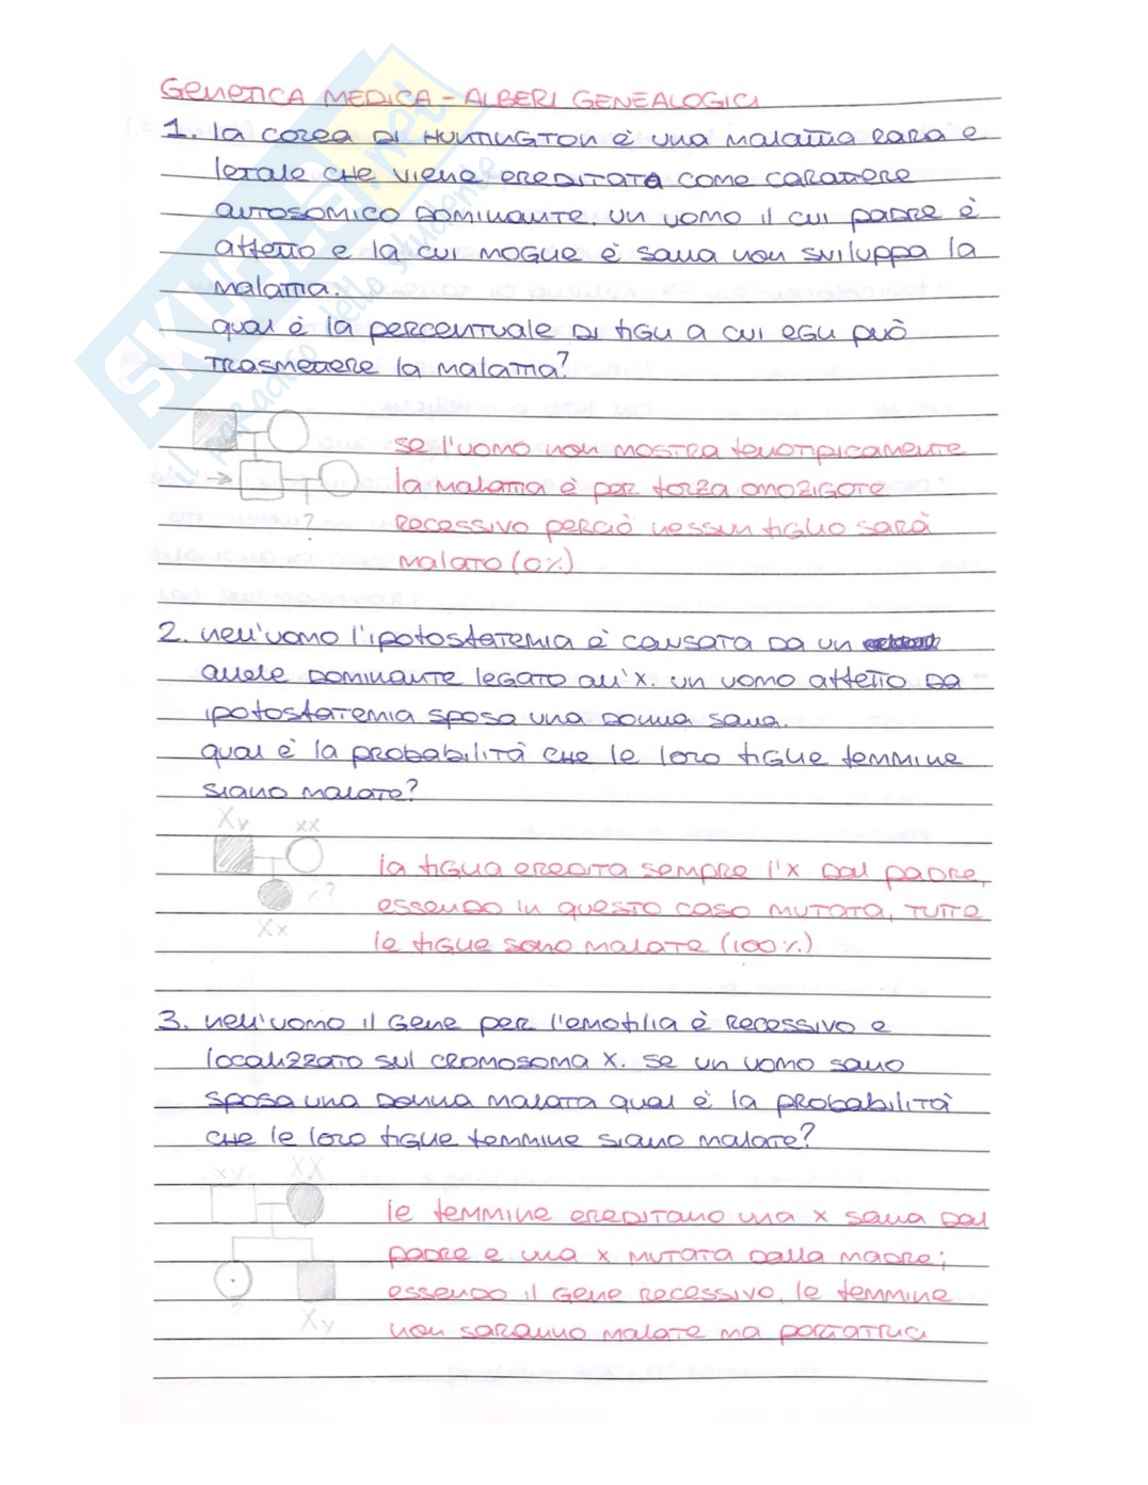 GENETICA MEDICA - ALBERI GENEALOGICI
1. la corea di Huntington è una malattia rara e
letale che viene ereditata come carattere
autosomico dominante. un uomo il cui padre è
affetto e la cui moglie è sana non sviluppa la
malattia.
qual è la percentuale di figli a cui egli può
trasmettere la malattia?
se l'uomo non mostra fenotipicamente
la malattia è per forza omozigote
?
recessivo perciò nessun figlio sarà
malato (0%)
2. nell'uomo l'ipofosfatemia è causata da un
allele dominante legato all'X. un uomo affetto da
ipofosfatemia sposa una donna sana.
qual è la probabilità che le loro figlie femmine
siano malate?
Xy xx
la figlia eredita sempre l'X dal padre,
?
essendo in questo caso mutata, tutte
Xx
le figlie sono malate (100%)
3. nell'uomo il gene per l'emofilia è recessivo e
localizzato sul cromosoma X. se un uomo sano
sposa una donna malata qual è la probabilità
che le loro figlie femmine siano malate?
xy XX
le femmine ereditano una x sana dal
padre e una x mutata dalla madre;
essendo il gene recessivo, le femmine
Xy
non saranno malate ma portatrici
SKUOLA.net
il paradiso dello studente